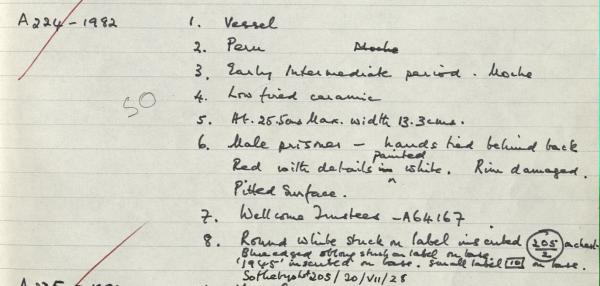 A224-1982 1. Vessel
2. Peru Moche
3. Early Intermediate period. Moche
50
4. Low fired ceramic
5. Ht. 25.5cms Max. width 13.3cms.
6. Male prisoner – hands tied behind back
Red with details painted in white. Rim damaged.
Pitted Surface.
7. Wellcome Trustees -A64167
8. Round white stuck on label inscribed 205/2 on chest
Blue edged oblong stuck on label on base
'1945' inscribed on base. Small label 10 on base.
Sothebys lot 205/20/VII/28